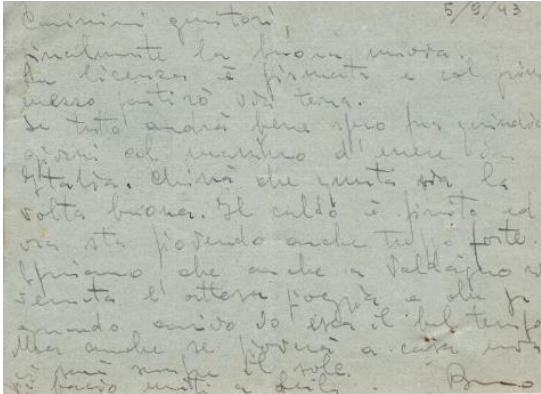 5/9/43
Carissimi genitori,
finalmente la buona nuova.
La licenza è firmata e col primo
mezzo partirò via terra.
Se tutto andrà bene spero fra quindici
giorni al massimo d'essere in
Italia. Chissà che questa sia la
volta buona. Il caldo è finito ed
ora sta piovendo anche troppo forte.
Speriamo che anche a Valdagno sia
venuta l'attesa pioggia e che per
quando arrivo io esca il bel tempo.
Ma anche se pioverà a casa nostra
ci sarà sempre il sole.
Vi bacio uniti a
Bruno